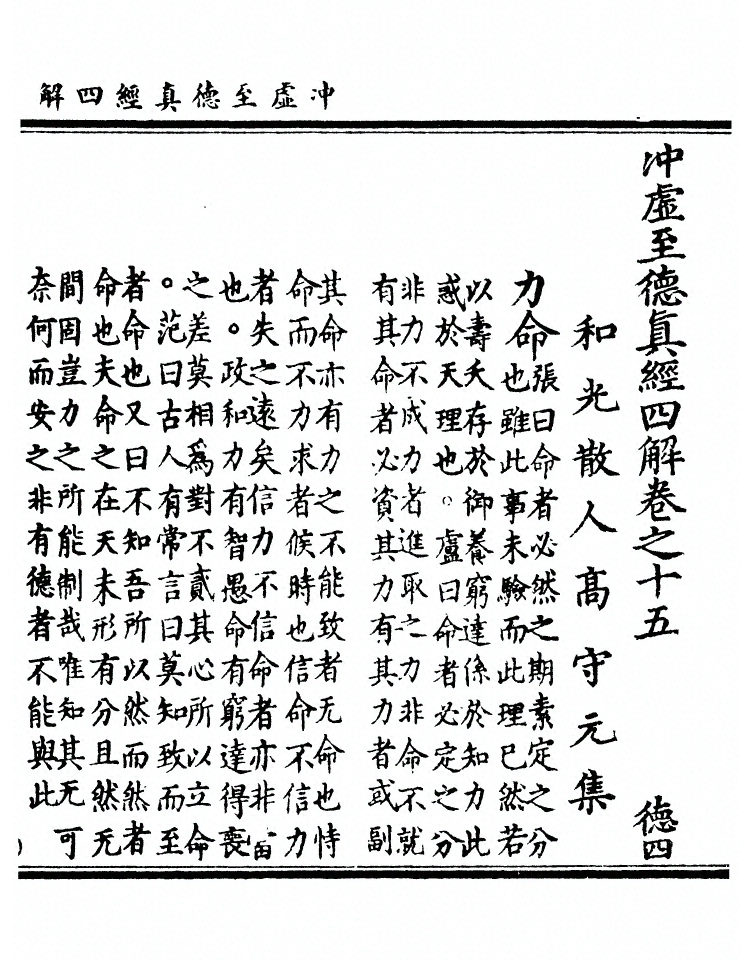 冲虛至德真經四解
冲虛至德眞經四解卷之十五 德四
和光散人高守元集
力命
張曰命者必然之期素定之分
也雖此事未驗而此理已然若
以壽夭存於御養窮達係於知力此
惑於天理也。盧曰命者必定之分
非力不成力者進取之力非命不就
有其命者必資其力有其力者或副
其命亦有力之不能致者无命也恃
命而不力求者候時也信命不信力
者失之遠矣信力不信命者亦非
也。政和力有智愚命有窮達得喪
之差莫相爲對不貳其心所以立命
。范曰古人有常言曰莫知致而至
者命也又曰不知吾所以然而然者
命也夫命之在天未形有分且然无
間固豈力之所能制哉唯知其无可
奈何而安之非有德者不能與此